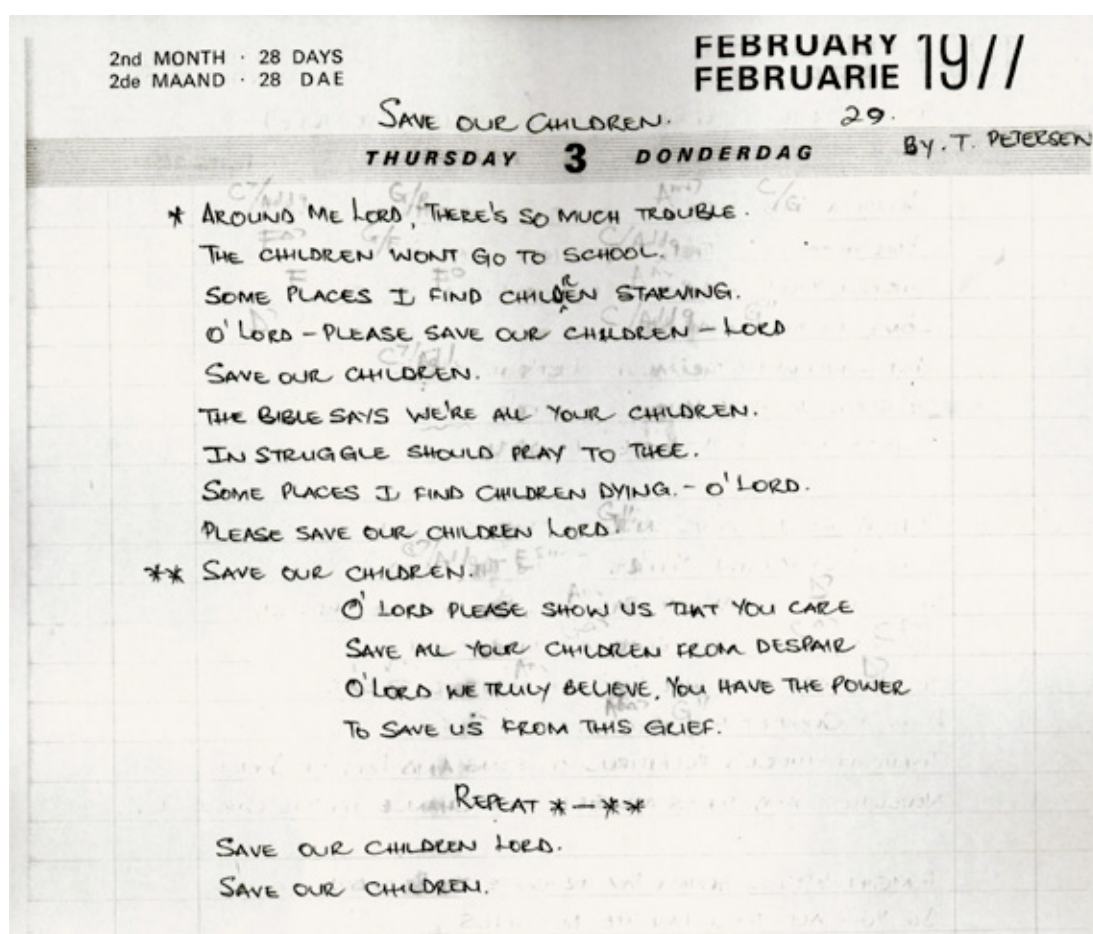 2nd MONTH · 28 DAYS
2de MAAND · 28 DAE
FEBRUARY 1977
FEBRUARIE
SAVE OUR CHILDREN. 29.
THURSDAY 3 DONDERDAG BY. T. PETERSEN
* AROUND ME LORD, THERE'S SO MUCH TROUBLE.
THE CHILDREN WONT GO TO SCHOOL.
SOME PLACES I FIND CHILDREN STARVING.
O' LORD - PLEASE SAVE OUR CHILDREN - LORD
SAVE OUR CHILDREN.
THE BIBLE SAYS WE'RE ALL YOUR CHILDREN.
IN STRUGGLE SHOULD PRAY TO THEE.
SOME PLACES I FIND CHILDREN DYING. - O' LORD.
PLEASE SAVE OUR CHILDREN LORD.
** SAVE OUR CHILDREN.
O' LORD PLEASE SHOW US THAT YOU CARE
SAVE ALL YOUR CHILDREN FROM DESPAIR
O' LORD WE TRULY BELIEVE, YOU HAVE THE POWER
TO SAVE US FROM THIS GRIEF.
REPEAT * - **
SAVE OUR CHILDREN LORD.
SAVE OUR CHILDREN.